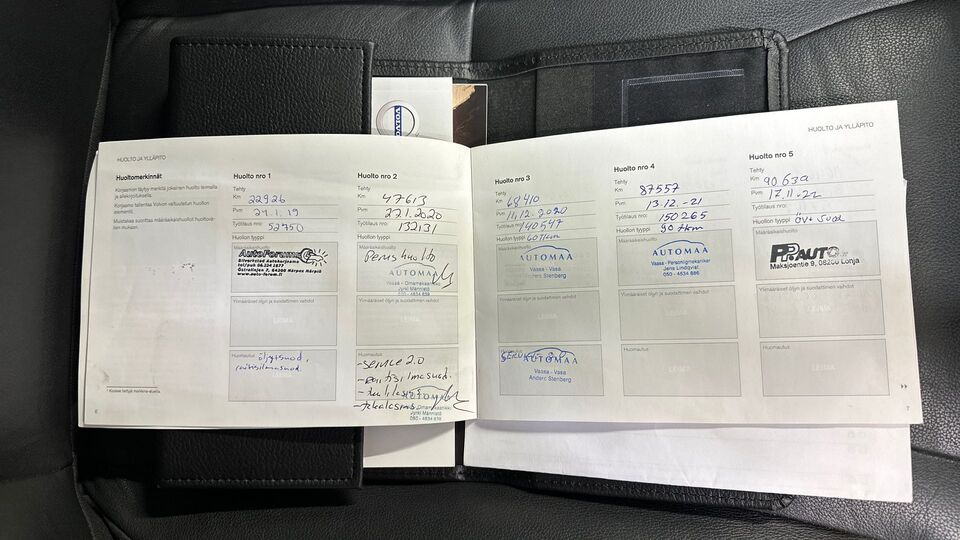 VOLVO
HUOLTO JA YLLÄPITO
Huoltomerkinnät
Korjaamon täytyy merkitä jokainen huolto leimalla
ja allekirjoituksella.
Korjaamo tallentaa Volvon valtuutetun huollon
Muistakaa suorittaa määräaikaishuollot huolto-oh-
mukaan.
6
Huolto nro 1
Tehty
Km 22926
Pvm 21.1.19
Työtilaus nro: 52750
Huollon tyyppi
Määräaikaishuolto
AutoForums
Silverstrad Autokorjaamo
tel/puh 06 224 1877
www.auto-forum.fi
Ylimääräiset öljyn ja suodattimen vaihdot
LEIMA
Huomautus öljytsuod,
raitisilmasuod.
Huolto nro 2
Tehty
Km 47613
Pvm 22.1.2020
Työtilaus nro: 132131
Huollon tyyppi
Määräaikaishuolto
Perushuolto
AUTOMAA
Vaasa - Omamekaanikko
Jyrki Männistö
050 - 4634 639
Ylimääräiset öljyn ja suodattimen vaihdot
LEIMA
Huomautus
-service 2.0
-raitisilmasuod.
Jyrki Männistö
HUOLTO JA YLLÄPITO
Huolto nro 3
Tehty
Km 68410
Pvm 11.12.2020
Työtilaus nro: 140547
Huollon tyyppi 60Tkm
Määräaikaishuolto
AUTOMAA
Vaasa - Vasa
Anders Stenberg
Ylimääräiset öljyn ja suodattimen vaihdot
LEIMA
Huomautus
AUTOMAA
Vaasa - Vasa
Anders Stenberg
Huolto nro 4
Tehty
Km 87557
Pvm 13.12.-21
Työtilaus nro: 150265
Huollon tyyppi 90Tkm
Määräaikaishuolto
AUTOMAA
Vaasa - Personligmekaniker
Jens Lindqvist
050 - 4634 686
Ylimääräiset öljyn ja suodattimen vaihdot
LEIMA
Huomautus
LEIMA
Huolto nro 5
Tehty
Km 90639
Pvm 17.11-22
Työtilaus nro:
Huollon tyyppi öly+suod
Määräaikaishuolto
PRAUTO
Maksjoentie 9, 08200 Lohja
Ylimääräiset öljyn ja suodattimen vaihdot
LEIMA
Huomautus
LEIMA
7